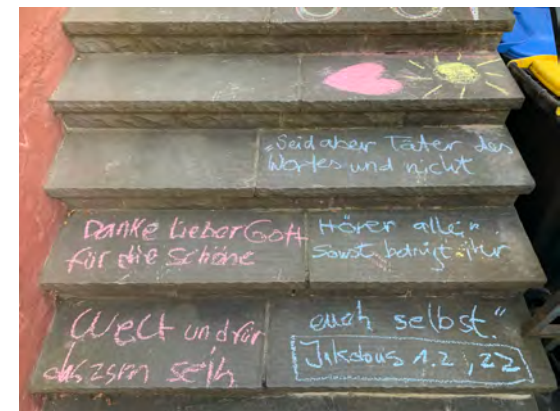 „Seid aber Täter des
Wortes und nicht
Hörer allein
sonst betrügt ihr
euch selbst."
Jakobus 1.2,22
Danke lieber Gott
für die Schöne
Welt und für
das zsm sein